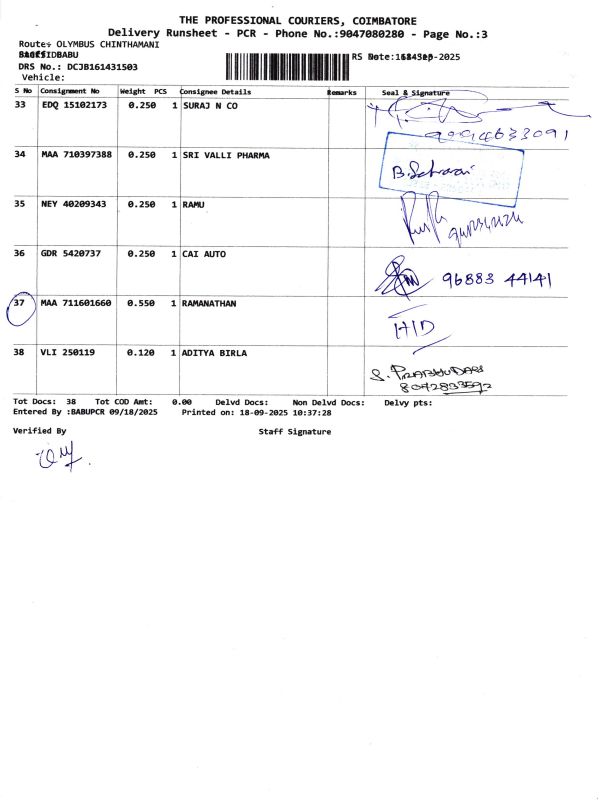 THE PROFESSIONAL COURIERS, COIMBATORE
Delivery Runsheet - PCR - Phone No.:9047080280 - Page No.:3
Route: OLYMBUS CHINTHAMANI
DRS No.: DCJB161431503
RS Date: -2025
Vehicle:
S No Consignment No Weight PCS Consignee Details Remarks Seal & Signature
33 EDQ 15102173 0.250 1 SURAJ N CO
34 MAA 710397388 0.250 1 SRI VALLI PHARMA
35 NEY 40209343 0.250 1 RAMU
36 GDR 5420737 0.250 1 CAI AUTO 96883 44141
37 MAA 711601660 0.550 1 RAMANATHAN
38 VLI 250119 0.120 1 ADITYA BIRLA
Tot Docs: 38 Tot COD Amt: 0.00 Delvd Docs: Non Delvd Docs: Delvy pts:
Entered By :BABUPCR 09/18/2025 Printed on: 18-09-2025 10:37:28
Verified By Staff Signature